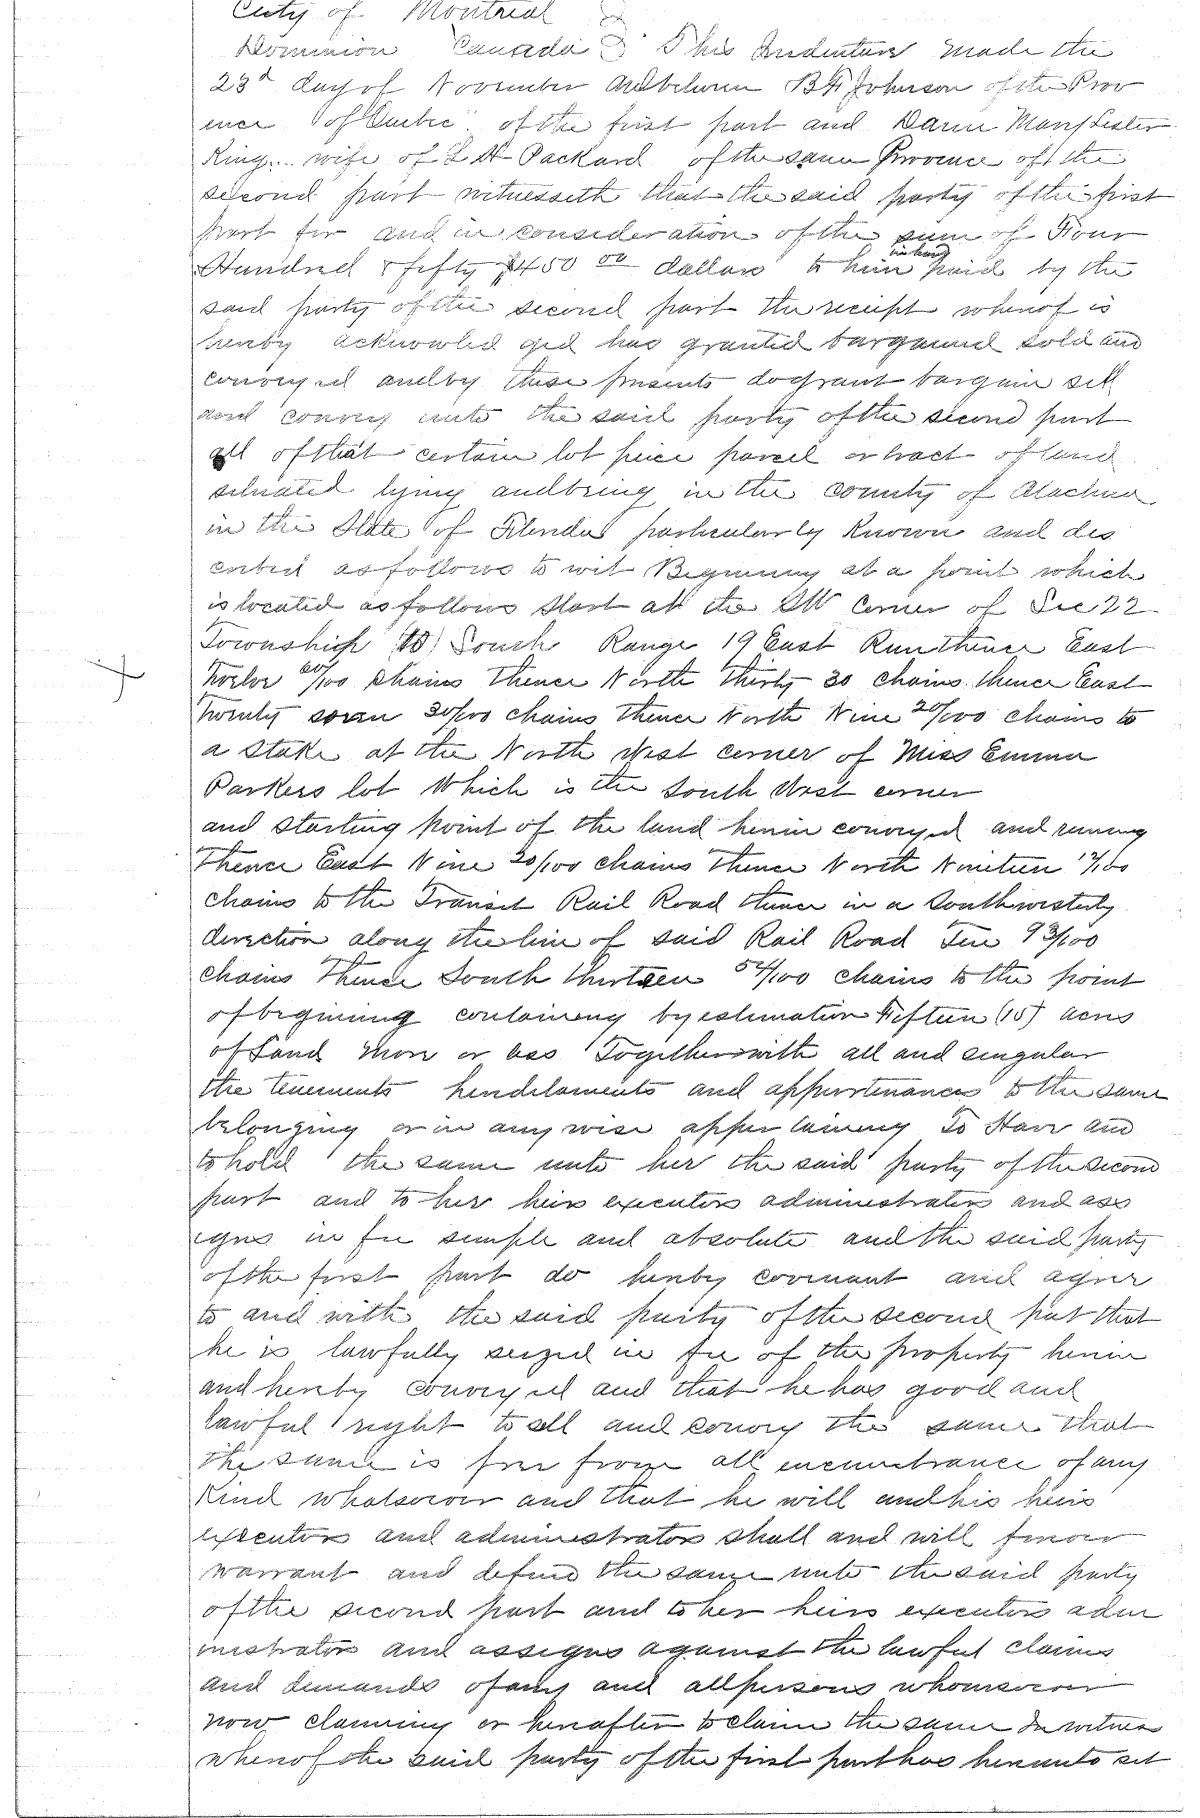 City of Montreal
Dominion Canada } This Indenture made the
23d day of November AD between B F Johnson of the Prov
ence of Quebec of the first part and
King wife of L H Packard of the same Province of the
second part witnesseth that the said party of the first
part for and in consideration of the sum of Four
Hundred & fifty $450 00 dollars to him in hand paid by the
said party of the second part the receipt whereof is
hereby acknowled ged has granted bargained sold and
conveyed and by these presents do grant bargain sell
and convey unto the said party of the second part
all of that certain lot piece parcel or tract of land
situated lying and being in the county of Alachua
in the State of Florida particularly Known and des
cribed as follows to wit Beginning at a point which
is located as follows Start at the SW corner of Sec 22
Township (10) South Range 19 East Run thence East
Twelve 60/100 chains thence North thirty 30 chains thence East
Twenty seven 30/100 chains thence North Nine 20/100 chains to
a stake at the North West corner of Miss Emma
Parkers lot Which is the South West corner
and starting point of the land herein conveyed and runing
thence East Nine 20/100 chains thence North Nineteen 12/100
chains to the Transit Rail Road thence in a Southwesterly
direction along the line of said Rail Road Ten 93/100
chains Thence South thirteen 54/100 chains to the point
of begining containing by estimation Fifteen (15) acres
of Land more or less Together with all and singular
the tenements hereditaments and appurtenances to the same
belonging or in any wise appertaining To Have and
to hold the same unto her the said party of the second
part and to her heirs executors administrators and ass
igns in fee simple and absolute and the said party
of the first part do hereby covenant and agree
to and with the said party of the second part that
he is lawfully seized in fee of the property herein
and hereby conveyed and that he has good and
lawful right to sell and convey the same that
the same is free from all encumbrance of any
Kind whatsoever and that he will and his heirs
executors and administrators shall and will forever
warrant and defend the same unto the said party
of the second part and to her heirs executors adm
inistrators and assigns against the lawful claims
and demands of any and all persons whomsoever
now claiming or hereafter to claim the same In witness
whereof the said party of the first part has hereunto set